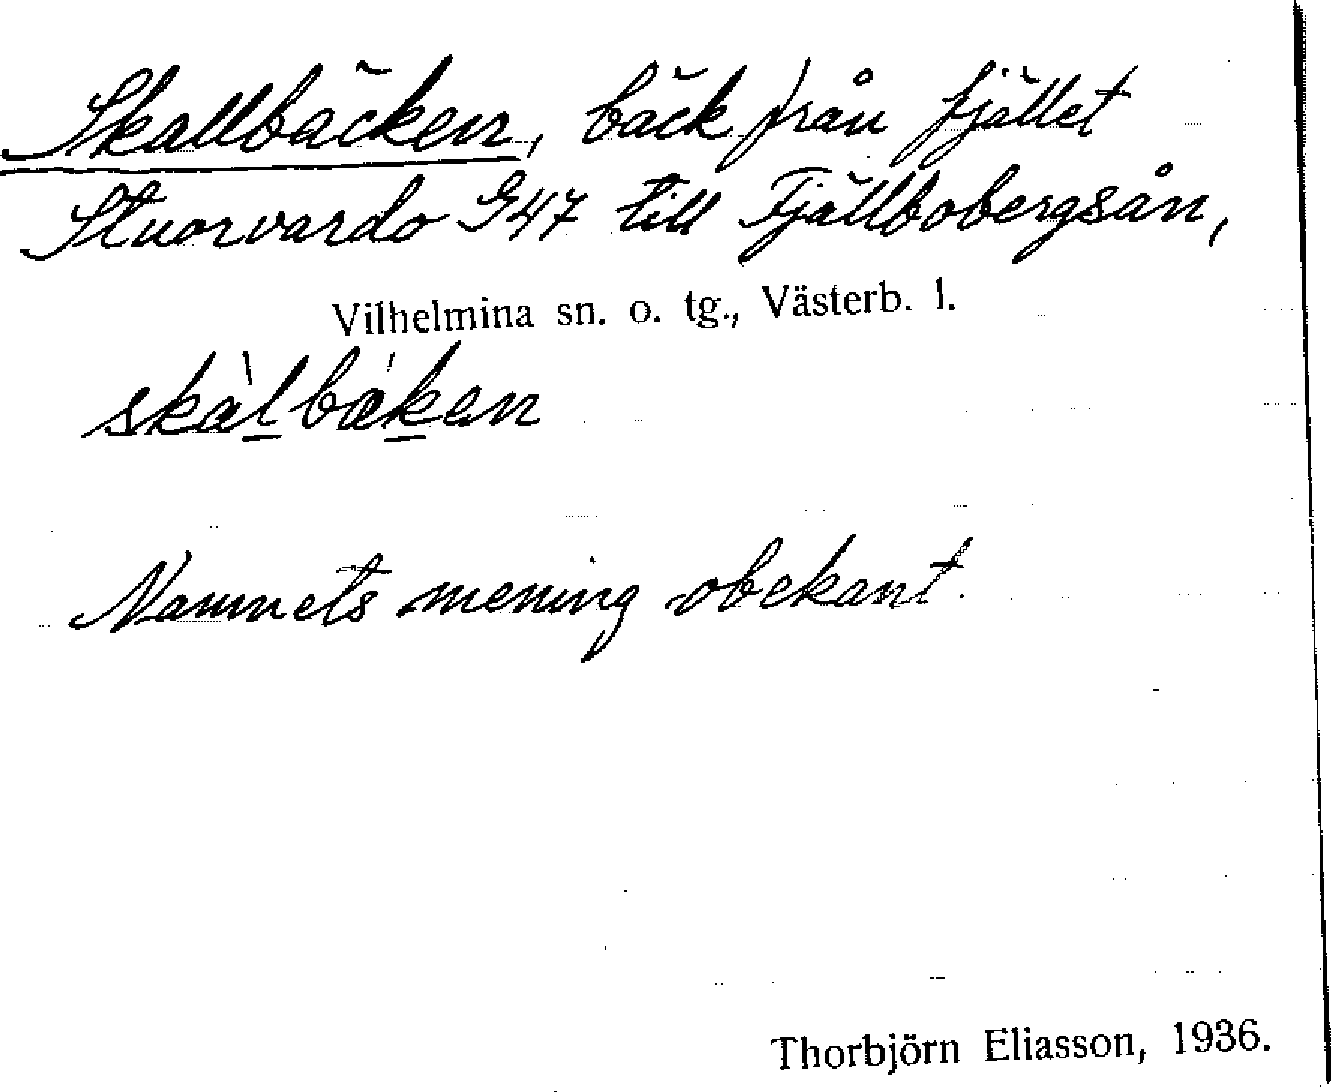 Skallbäcken, bäck från fjället
Stuorvardo 947 till Fjällbobergsån,
Vilhelmina sn. o. tg., Västerb. l.
skàl̲bák̲en
Namnets mening obekant.
Thorbjörn Eliasson, 1936.